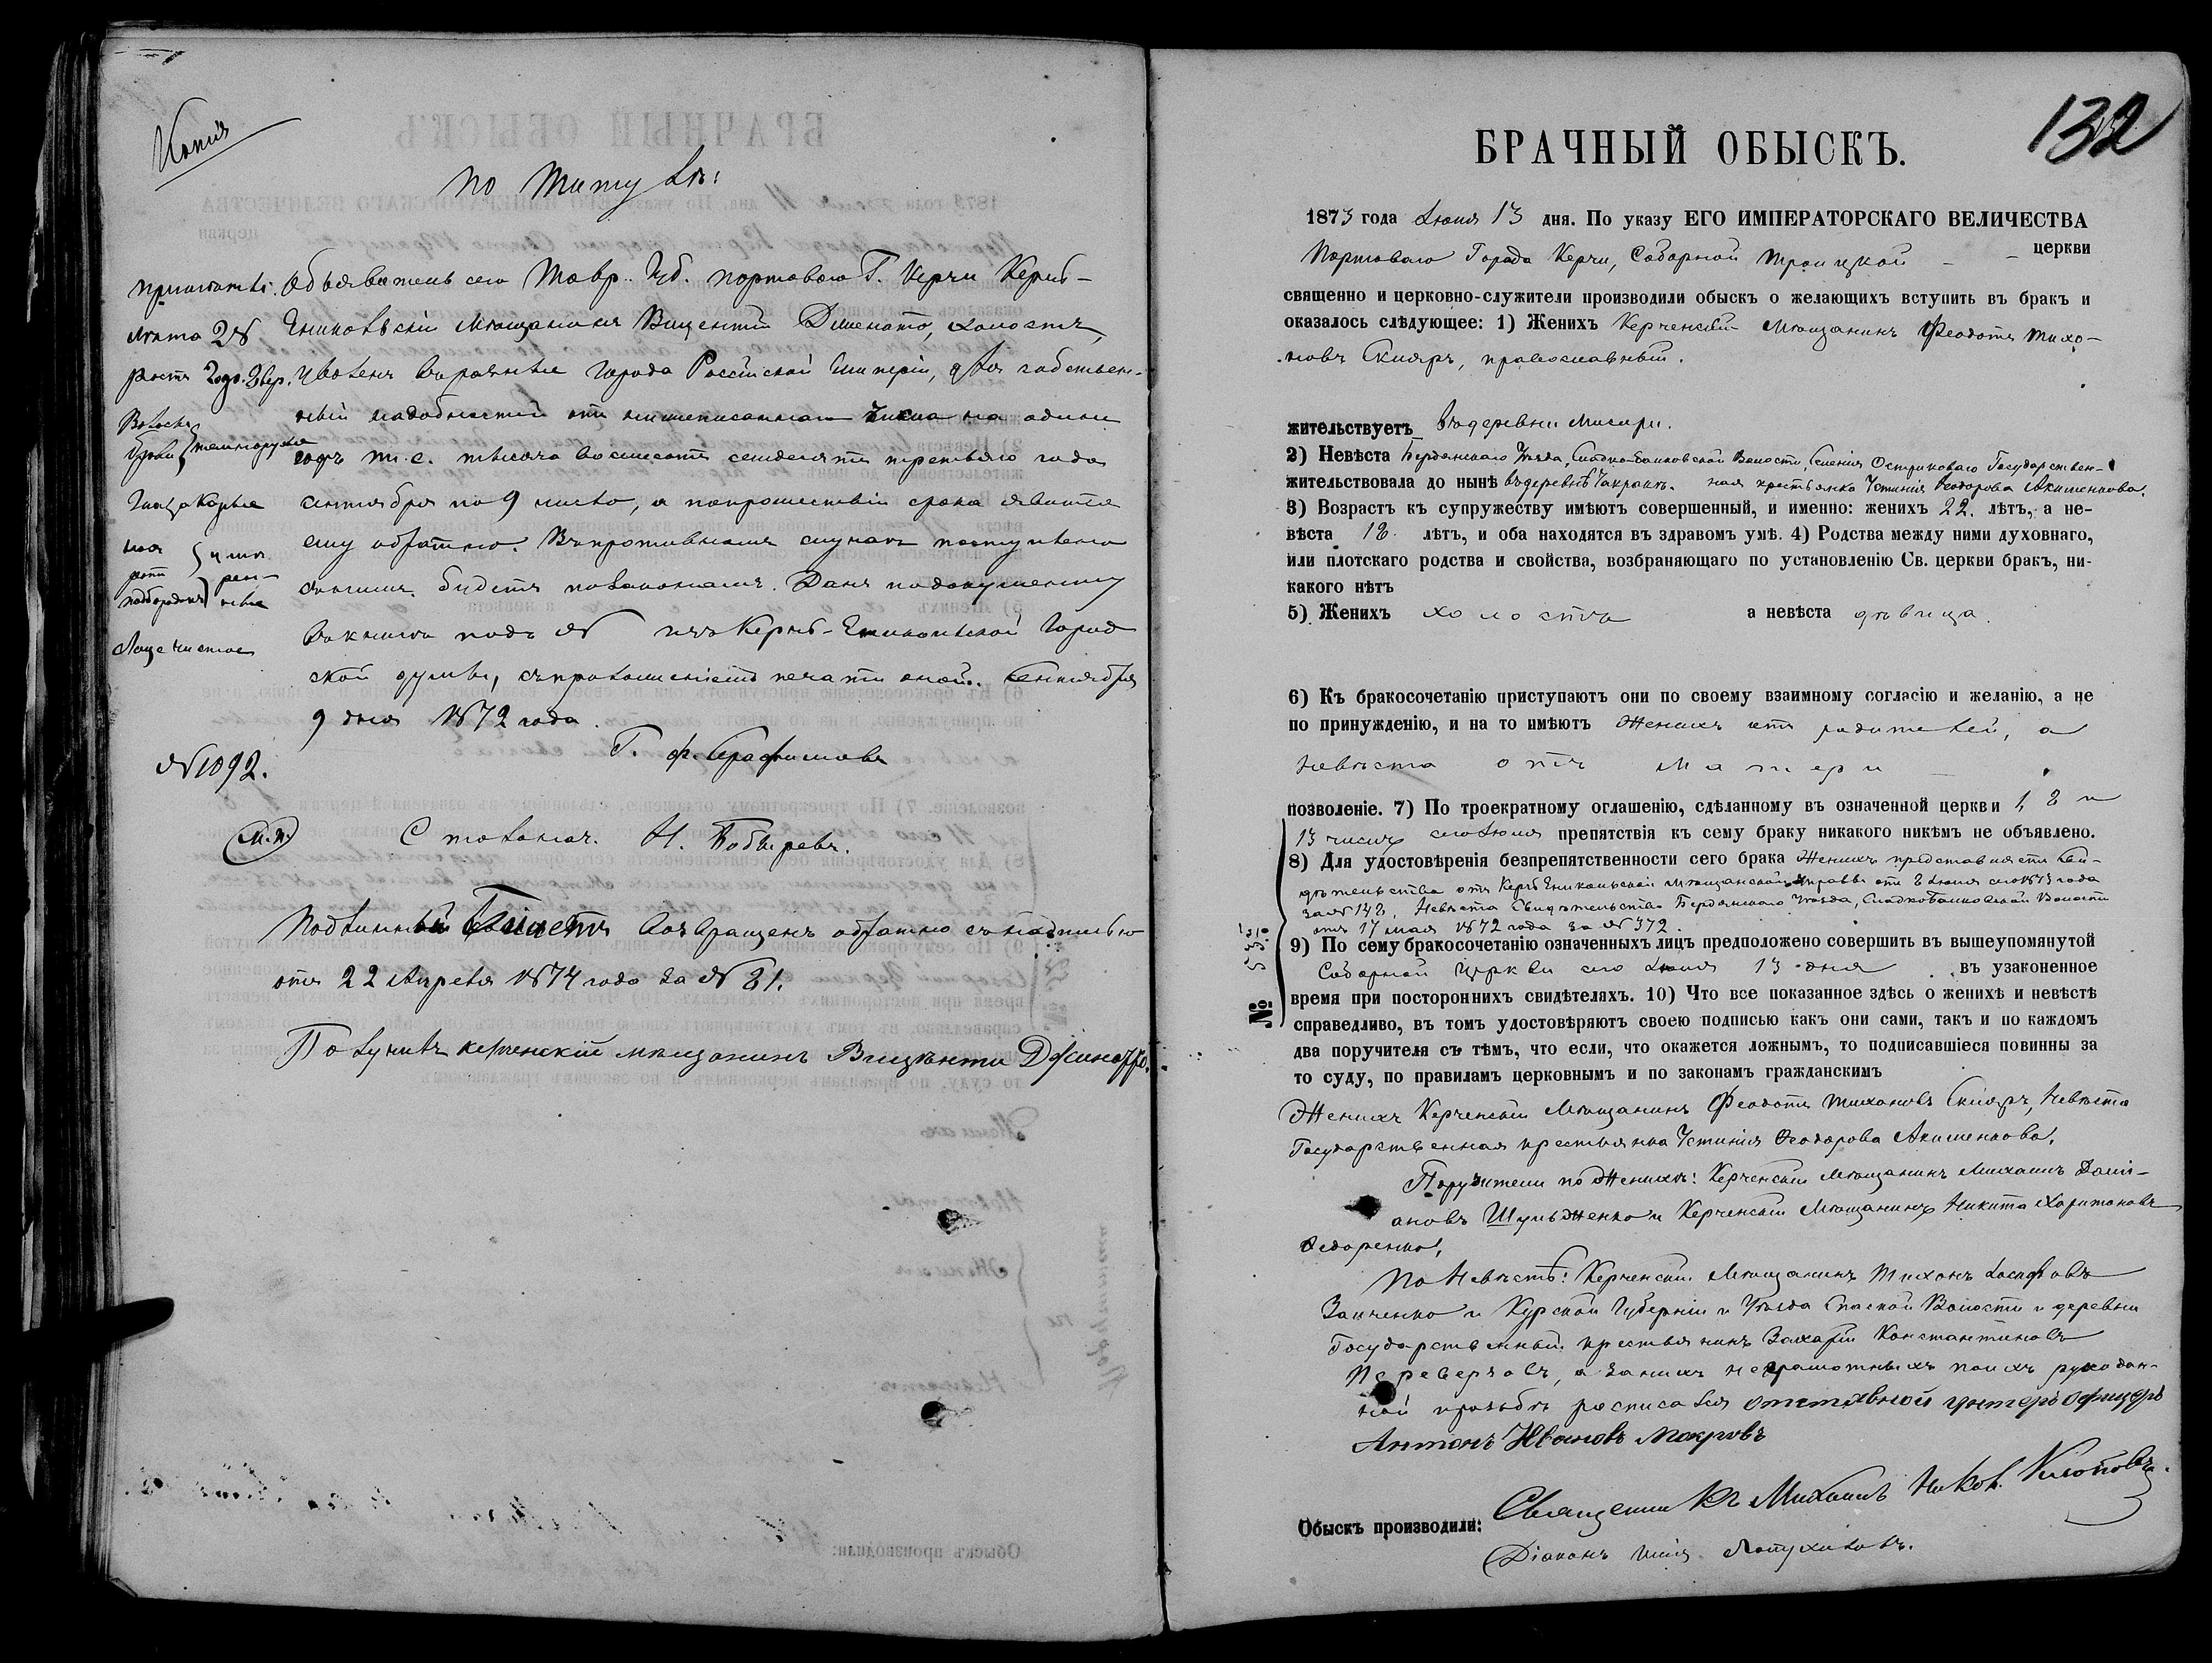 Копія
По титулѣ:
Примѣты:
лѣта 28
ростъ 2 ар. вер.
Волосы
брови } темнорусые
Глаза Каріе
носъ
ротъ
подбородокъ } умѣренные
Лице чистое
Объявитель сего Тавр. Губ. портоваго Г. Керчи Керчь-
Еникольскій мѣщанинъ Вицентій Дменато, холостъ,
уволенъ въ разные города Россійской Имперіи, для собствен-
ныхъ надобностей отъ нижеписаннаго числа на одинъ
годъ т. е. тысяча восемсотъ семдесятъ третьяго года
сентября по 9 число, а по прошествіи срока явится
ему обратно. Въ противномъ случаѣ поступлено
съ нимъ будетъ по законамъ. Данъ по документу
въ книгѣ подъ № изъ Керчь-Еникольской Город
ской думы, съ приложеніемъ печати оной. Сентября
9 дня 1872 года.
Г. ф. Серафимовъ
№ 1092.
М. п.
С Н. Бобыревъ.
Подлинный билетъ возвращенъ обратно съ надписью
отъ 22 Апреля 1874 года за № 81.
Получилъ керченскій мещанинъ Вицѣнти
132
БРАЧНЫЙ ОБЫСКЪ.
1873 года Іюня 13 дня. По указу ЕГО ИМПЕРАТОРСКАГО ВЕЛИЧЕСТВА
Портоваго Города Керчи, Соборной Троицкой – – церкви
священно и церковно-служители производили обыскъ о желающихъ вступить въ бракъ и
оказалось слѣдующее: 1) Женихъ Керченскій Мѣщанинъ Феодотъ Тихо-
новъ Скляръ, православный.
жительствуетъ въ деревни Мисири.
2) Невѣста Бердянскаго Уѣзда, Сладко-Балковской Волости, Селенія Остриковаго Государствен-
жительствовала до нынѣ въ деревнѣ Чакракъ. ная крестьянка Устинія Ѳеодорова Акименкова.
3) Возрастъ къ супружеству имѣютъ совершенный, и именно: женихъ 22. лѣтъ, а не-
вѣста 18 лѣтъ, и оба находятся въ здравомъ умѣ. 4) Родства между ними духовнаго,
или плотскаго родства и свойства, возбраняющаго по установленію Св. церкви бракъ, ни-
какого нѣтъ
5) Женихъ холостъ а невѣста дѣвица.
6) Къ бракосочетанію приступаютъ они по своему взаимному согласію и желанію, а не
по принужденію, и на то имѣютъ Женихъ отъ родителей, а
Невѣста отъ матери –
позволеніе. 7) По троекратному оглашенію, сдѣланному въ означенной церкви 1, 8 и
13 числъ сего Іюня препятствія къ сему браку никакого никѣмъ не объявлено.
8) Для удостовѣренія безпрепятственности сего брака Женихъ представляетъ Сви-
дѣтельство отъ Керчь Еникольской мѣщанской Управы отъ 8 Іюня сего 1873 года
за № 148, Невѣста Свидѣтельство Бердянскаго Уѣзда, СладкоБалковской Волости
отъ 17 мая 1872 года за № 372.
9) По сему бракосочетанію означенныхъ лицъ предположено совершить въ вышеупомянутой
Соборной Церкви сего Іюня 13 дня въ узаконенное
время при постороннихъ свидѣтеляхъ. 10) Что все показанное здѣсь о женихѣ и невѣстѣ
справедливо, въ томъ удостовѣряютъ своею подписью какъ они сами, такъ и по каждомъ
два поручителя съ тѣмъ, что если, что окажется ложнымъ, то подписавшіеся повинны за
то суду, по правиламъ церковнымъ и по законамъ гражданскимъ
№
Женихъ Керченскій Мѣщанинъ Феодотъ Тихоновъ Скляръ, Невѣста
Государственная крестьянка Устинія Ѳеодорова Акименкова,
Поручители по Женихѣ: Керченскій Мѣщанинъ Михаилъ Дами-
ановъ Шульженко и Керченскій Мѣщанинъ Никита Харитоновъ
Ѳедоренко,
По Невѣстѣ: Керченскій Мѣщанинъ Тихонъ Іосифовъ
Заиченко и Курской Губерніи и Уѣзда Спаской Волости и деревни
Государственный крестьянинъ Захарій Константиновъ
Переверзовъ, а за нихъ неграмотныхъ по ихъ рукодан-
ной прозьбѣ росписался отставной унтеръ офицеръ
Антонъ Ивановъ Мокровъ
Обыскъ производили: Священникъ Михаилъ Никол.
Діаконъ Илія Лопухиновъ.